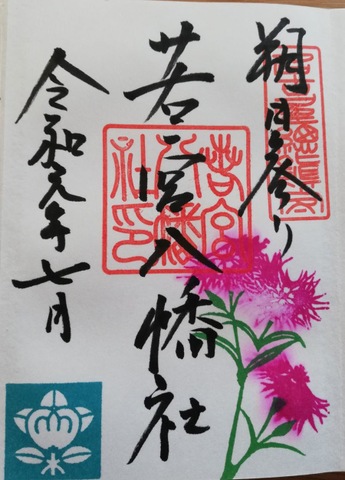 朔日参り
若宮八幡社
令和元年七月
若宮八幡社印